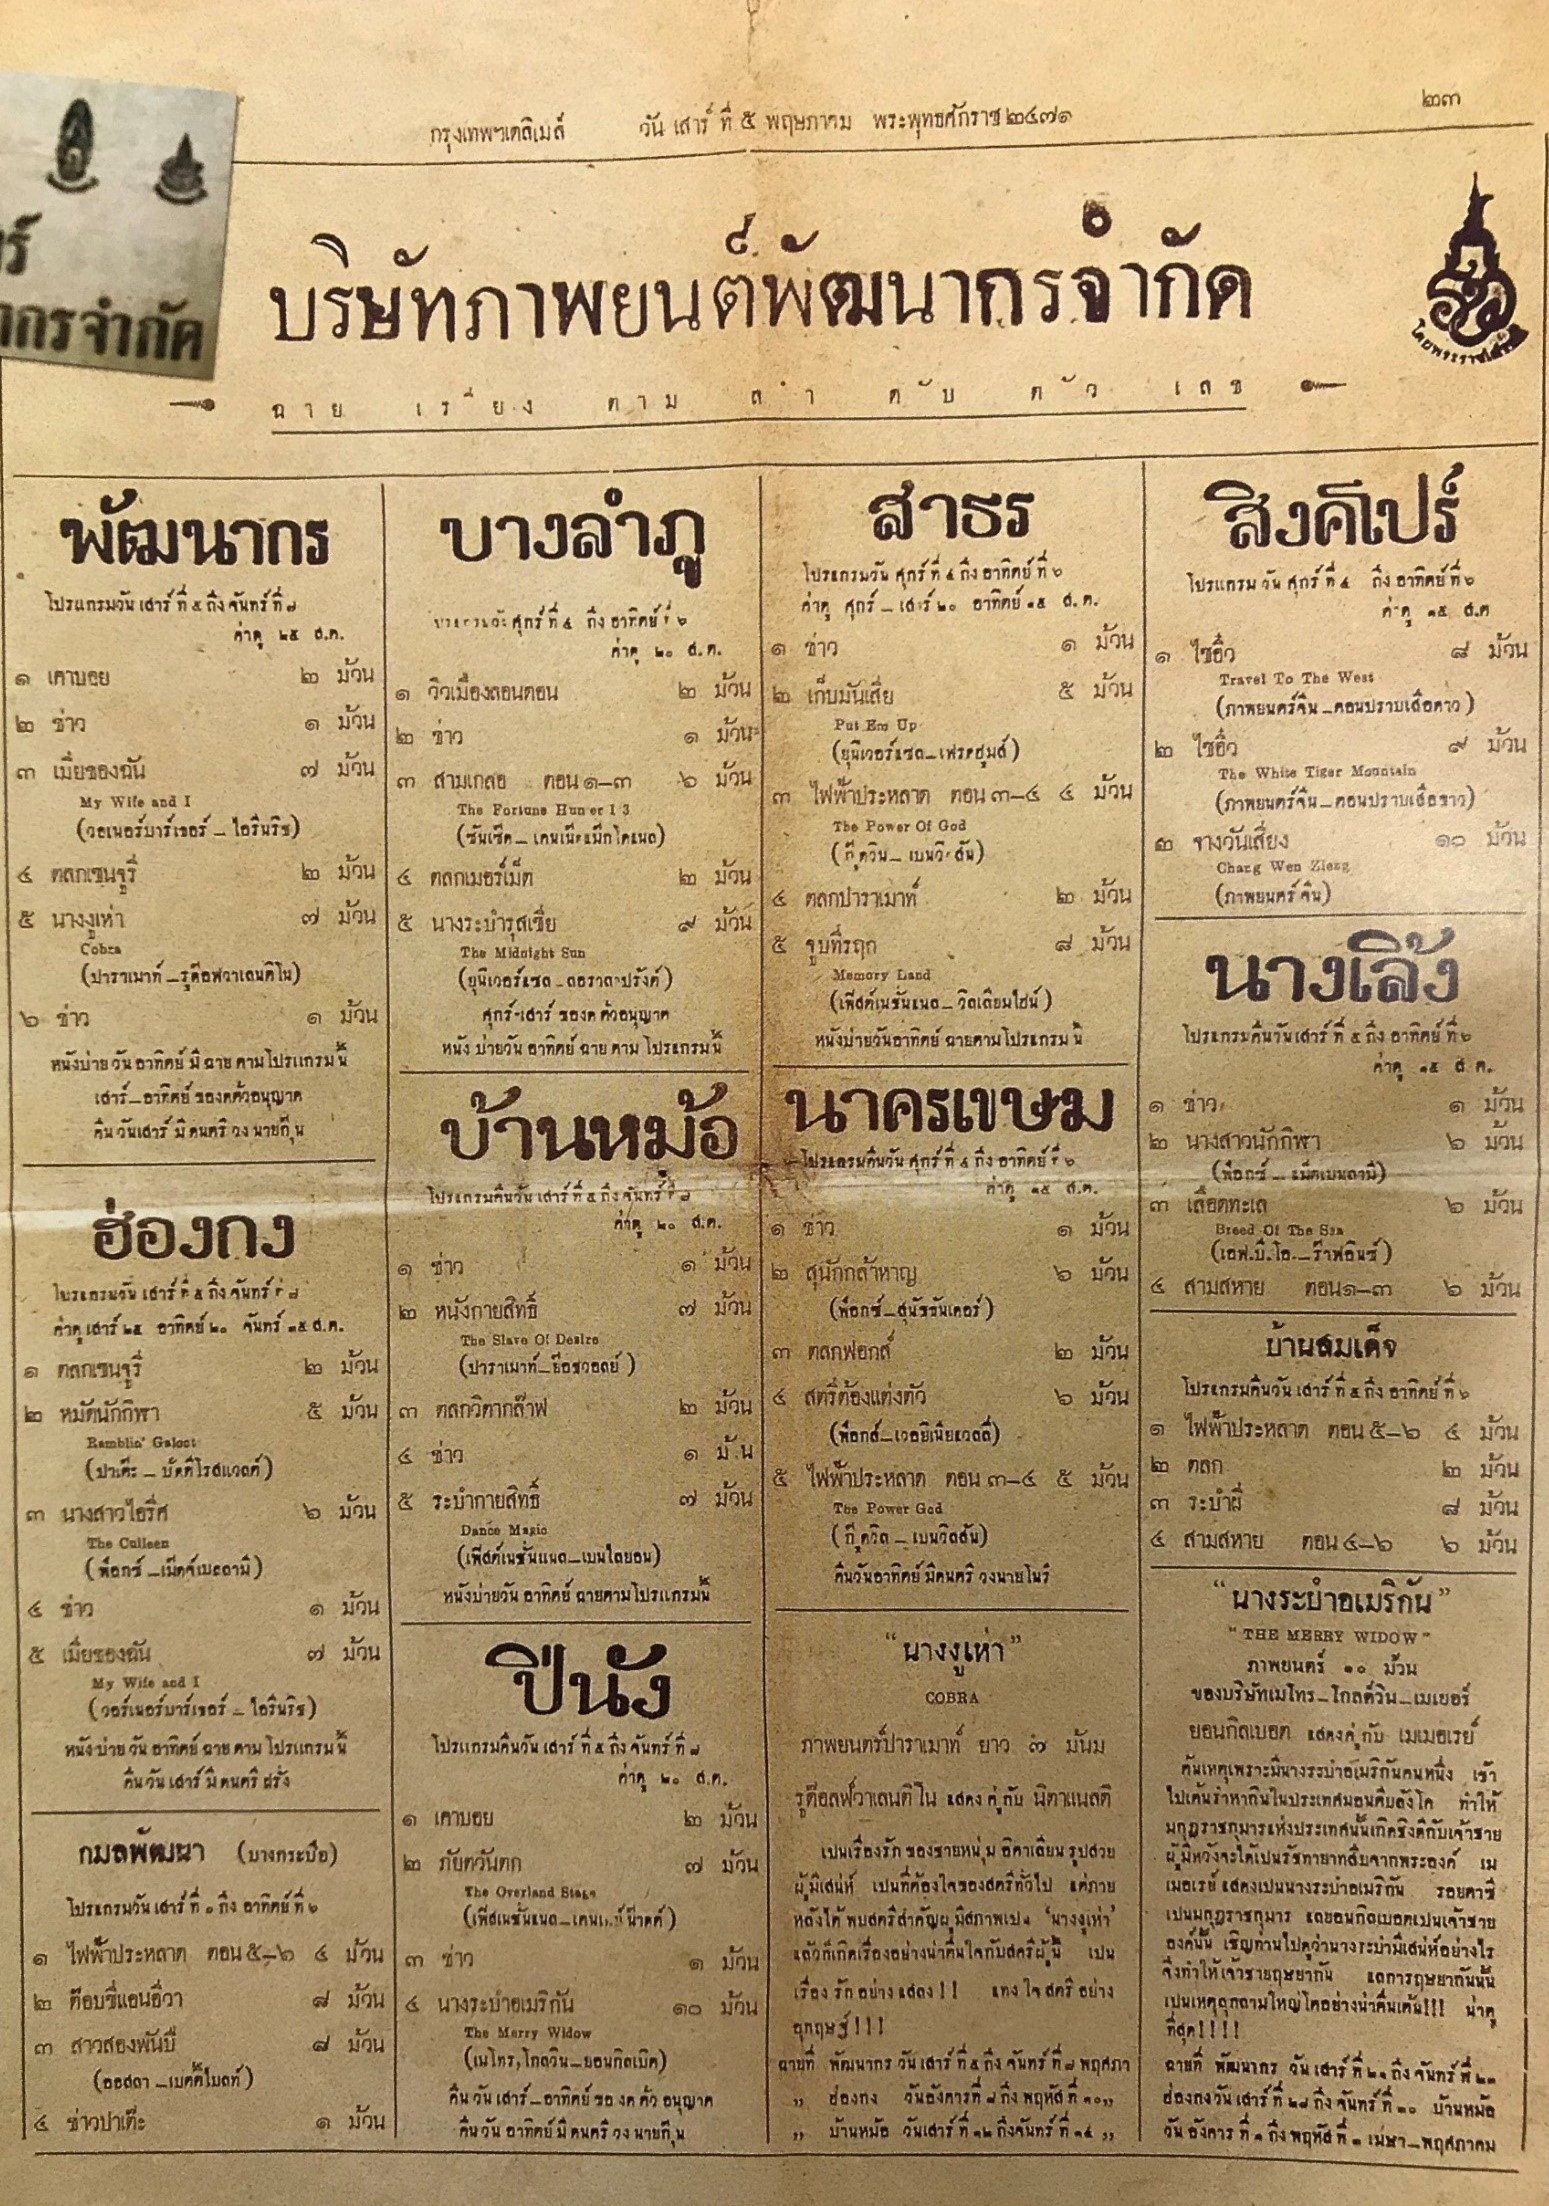 กรุงเทพฯเดลิเมล์ วัน เสาร์ ที่ ๕ พฤษภาคม พระพุทธศักราช ๒๔๗๑ ๒๓
ากรจำกัด
บริษัทภาพยนต์พัฒนากรจำกัด
ฉาย เรียง ตาม ลำดับ ตัว เลข
พัฒนากร
โปรแกรมวัน เสาร์ ที่ ๕ ถึง จันทร์ ที่ ๗
ค่าดู ๒๕ ส.ต.
๑ เคาบอย ๒ ม้วน
๒ ข่าว ๑ ม้วน
๓ เมียของฉัน ๗ ม้วน
My Wife and I
(วอเนอร์บาร์เธอร์ — ไอรินริช)
๔ ตลกเซนจูรี่ ๒ ม้วน
๕ นางงูเห่า ๗ ม้วน
Cobra
(ปาราเมาท์ — รูดือฟวาเลนติโน)
๖ ข่าว ๑ ม้วน
หนังบ่าย วัน อาทิตย์ มี ฉาย ตาม โปรแกรม นี้
เสาร์ — อาทิตย์ ของดตั๋วอนุญาต
คืน วันเสาร์ มี ดนตรี วง นายกุ๊น
ฮ่องกง
โปรแกรมวัน เสาร์ ที่ ๕ ถึง จันทร์ ที่ ๗
ค่าดู เสาร์ ๒๕ อาทิตย์ ๒๐ จันทร์ ๑๕ ส.ต.
๑ ตลกเซนจูรี่ ๒ ม้วน
๒ หมัดนักกีฬา ๕ ม้วน
Ramblin' Galoot
(ปาเต๊ะ — บัดดี้โรสแวลต์)
๓ นางสาวไอริศ ๖ ม้วน
The Culleen
(ฟ็อกซ์ — เม็ดจ์เบลลามี)
๔ ข่าว ๑ ม้วน
๕ เมียของฉัน ๗ ม้วน
My Wife and I
(วอร์เนอร์บาร์เธอร์ — ไอรินริช)
หนังบ่าย วัน อาทิตย์ ฉาย ตาม โปรแกรม นี้
คืน วัน เสาร์ มี ดนตรี ฝรั่ง
กมลพัฒนา (บางกระบือ)
โปรแกรมวัน เสาร์ ที่ ถึง อาทิตย์ ที่ ๖
๑ ไฟฟ้าประหลาด ตอน ๕—๖ ๔ ม้วน
๒ ค๊อบซี่แอนอีวา ๘ ม้วน
๓ สาวสองพันปี ๘ ม้วน
๔ ข่าวปาเต๊ะ ๑ ม้วน
บางลำภู
ศุกร์ ที่ ๔ ถึง อาทิตย์ ที่ ๖
ค่าดู ๒๐ ส.ต.
๑ วิวเมืองลอนดอน ๒ ม้วน
๒ ข่าว ๑ ม้วน
๓ สามเกลอ ตอน ๑—๓ ๖ ม้วน
The Fortune Hun er 1 3
๔ ตลกเมอร์เม็ด ๒ ม้วน
๕ นางระบำรุสเซีย ๙ ม้วน
The Midnight Sun
(ยูนิเวอร์แซล — ลอราลาปรังค์)
ศุกร์-เสาร์ ของด ตั๋วอนุญาต
หนัง บ่ายวัน อาทิตย์ ฉาย ตาม โปรแกรม นี้
บ้านหม้อ
โปรแกรมคืนวัน เสาร์ ที่ ๕ ถึง จันทร์ ที่ ๗
ค่าดู ๒๐ ส.ต.
๑ ข่าว ๑ ม้วน
๒ หนังกายสิทธิ์ ๗ ม้วน
The Slave Of Desire
(ปาราเมาท์ — ย๊อชวอลย์)
๓ ตลกวิตากล๊าฟ ๒ ม้วน
๔ ข่าว ๑ ม้วน
๕ ระบำกายสิทธิ์ ๗ ม้วน
Dance Magic
(เฟิสต์เนชั่นแนล — เบนไลยอน)
หนังบ่ายวัน อาทิตย์ ฉายตามโปรแกรมนี้
ปีนัง
โปรแกรมคืนวัน เสาร์ ที่ ๕ ถึง จันทร์ ที่ ๗
ค่าดู ๒๐ ส.ต.
๑ เคาบอย ๒ ม้วน
๒ ภัยตวันตก ๗ ม้วน
The Overland Stage
๓ ข่าว ๑ ม้วน
๔ นางระบำอเมริกัน ๑๐ ม้วน
The Merry Widow
(เมโทร, โกลวิน — ยอนกิลเบิต)
คืน วัน เสาร์ — อาทิตย์ ของด ตั๋ว อนุญาต
คืน วัน อาทิตย์ มี ดนตรี วง นายกุ๊น
สาธร
โปรแกรมวัน ศุกร์ ที่ ๔ ถึง อาทิตย์ ที่ ๖
ค่าดู ศุกร์ — เสาร์ ๒๐ อาทิตย์ ๑๕ ส.ต.
๑ ข่าว ๑ ม้วน
๒ เก็บมันเสีย ๕ ม้วน
Put Em Up
(ยูนิเวอร์แซล — เฟรดฮุมส์)
๓ ไฟฟ้าประหลาด ตอน ๓—๔ ๔ ม้วน
The Power Of God
๔ ตลกปาราเมาท์ ๒ ม้วน
๕ จูบที่รฦก ๘ ม้วน
Memory Land
(เฟิสต์เนชั่นแนล — วิลเลียมไฮน์)
หนังบ่ายวันอาทิตย์ ฉายตามโปรแกรม นี้
นาครเขษม
โปรแกรมคืนวัน ศุกร์ ที่ ๔ ถึง อาทิตย์ ที่ ๖
ค่าดู ๑๕ ส.ต.
๑ ข่าว ๑ ม้วน
๒ สุนักกล้าหาญ ๖ ม้วน
(ฟ็อกซ์ — สุนัขธันเดอร์)
๓ ตลกฟอกส์ ๒ ม้วน
๔ สตรีต้องแต่งตัว ๖ ม้วน
(ฟ็อกส์ — เวอยิเนียแวลลี่)
๕ ไฟฟ้าประหลาด ตอน ๓—๔ ๕ ม้วน
The Power God
คืนวันอาทิตย์ มีดนตรี วงนายโนรี
“นางงูเห่า”
COBRA
ภาพยนตร์ปาราเมาท์ ยาว ๗ ม้นม
รูดือลฟ์วาเลนติโน แสดง คู่ กับ นิตาแนลดี
เปนเรื่องรัก ของชายหนุ่ม อิตาเลียน รูปสวย
ผู้มีเสน่ห์ เปนที่ต้องใจของสตรีทั่วไป แต่ภาย
หลังได้ พบสตรีสำคัญผู้มีสภาพเปน ‘นางงูเห่า’
แล้วก็เกิดเรื่องอย่างน่าตื่นใจกับสตรีผู้นี้ เปน
เรื่อง รัก อย่าง แสดง !! แทง ใจ สตรี อย่าง
อุกฤษฐ์!!!
ฉายที่ พัฒนากร วัน เสาร์ ที่ ๕ ถึง จันทร์ ที่ ๗ พฤสภา
,, ฮ่องกง วันอังคารที่ ๘ ถึง พฤหัส ที่ ๑๐,,
,, บ้านหม้อ วันเสาร์ที่ ๑๒ ถึงจันทร์ ที่ ๑๔ ,,
สิงคโปร์
โปรแกรม วัน ศุกร์ ที่ ๔ ถึง อาทิตย์ ที่ ๖
ค่าดู ๑๕ ส.ต
๑ ไซอิ๋ว ๘ ม้วน
Travel To The West
(ภาพยนตร์จีน — ตอนปราบเสือดาว)
๒ ไซอิ๋ว ๙ ม้วน
The White Tiger Mountain
(ภาพยนตร์จีน — ตอนปราบเสือขาว)
๓ จางวันเสี่ยง ๑๐ ม้วน
Chang Wen Zieng
(ภาพยนตร์ จีน)
นางเลิ้ง
โปรแกรมคืนวันเสาร์ ที่ ๕ ถึง อาทิตย์ ที่ ๖
ค่าดู ๑๕ ส.ต.
๑ ข่าว ๑ ม้วน
๒ นางสาวนักกีฬา ๖ ม้วน
(ฟ็อกซ์ — เม็ดเบนลามี)
๓ เลือดทะเล ๖ ม้วน
Breed Of The Sea
(เอฟ.บี.โอ. — ร๊าฟอินซ์)
๔ สามสหาย ตอน๑—๓ ๖ ม้วน
บ้านสมเด็จ
โปรแกรมคืนวัน เสาร์ ที่ ๕ ถึง อาทิตย์ ที่ ๖
๑ ไฟฟ้าประหลาด ตอน ๕—๖ ๔ ม้วน
๒ ตลก ๒ ม้วน
๓ ระบำผี ๘ ม้วน
๔ สามสหาย ตอน ๔—๖ ๖ ม้วน
“นางระบำอเมริกัน”
“THE MERRY WIDOW”
ภาพยนตร์ ๑๐ ม้วน
ของบริษัทเมโทร — โกลด์วิน — เมเยอร์
ยอนกิลเบอต แสดงคู่กับ เมเมอเรย์
ต้นเหตุเพราะมีนางระบำอเมริกันคนหนึ่ง เข้า
ไปเต้นรำหากินในประเทศมอนตีบลังโค ทำให้
มกุฎราชกุมารแห่งประเทศนั้นเกิดชิงดีกับเจ้าชาย
ผู้มีหวังจะได้เปนรัชทายาทสืบจากพระองค์ เม
เมอเรย์ แสดงเปนนางระบำอเมริกัน รอยดาซี
เปนมกุฎราชกุมาร แลยอนกิลเบอตเปนเจ้าชาย
องค์นั้น เชิญท่านไปดูว่านางระบำมีเสน่ห์อย่างไร
จึงทำให้เจ้าชายฤษยากัน แลการฤษยากันนั้น
เปนเหตุลุกลามใหญ่โตอย่างน่าตื่นเต้น!!! น่าดู
ที่สุด!!!!
ฉายที่ พัฒนากร วัน เสาร์ ที่ ๒๑ ถึง จันทร์ ที่ ๒๓
ฮ่องกง วัน เสาร์ ที่ ๒๘ ถึง จันทร์ ที่ ๓๐ บ้านหม้อ
วัน อังคาร ที่ ๑ ถึง พฤหัส ที่ ๓ เมษา — พฤสภาคม